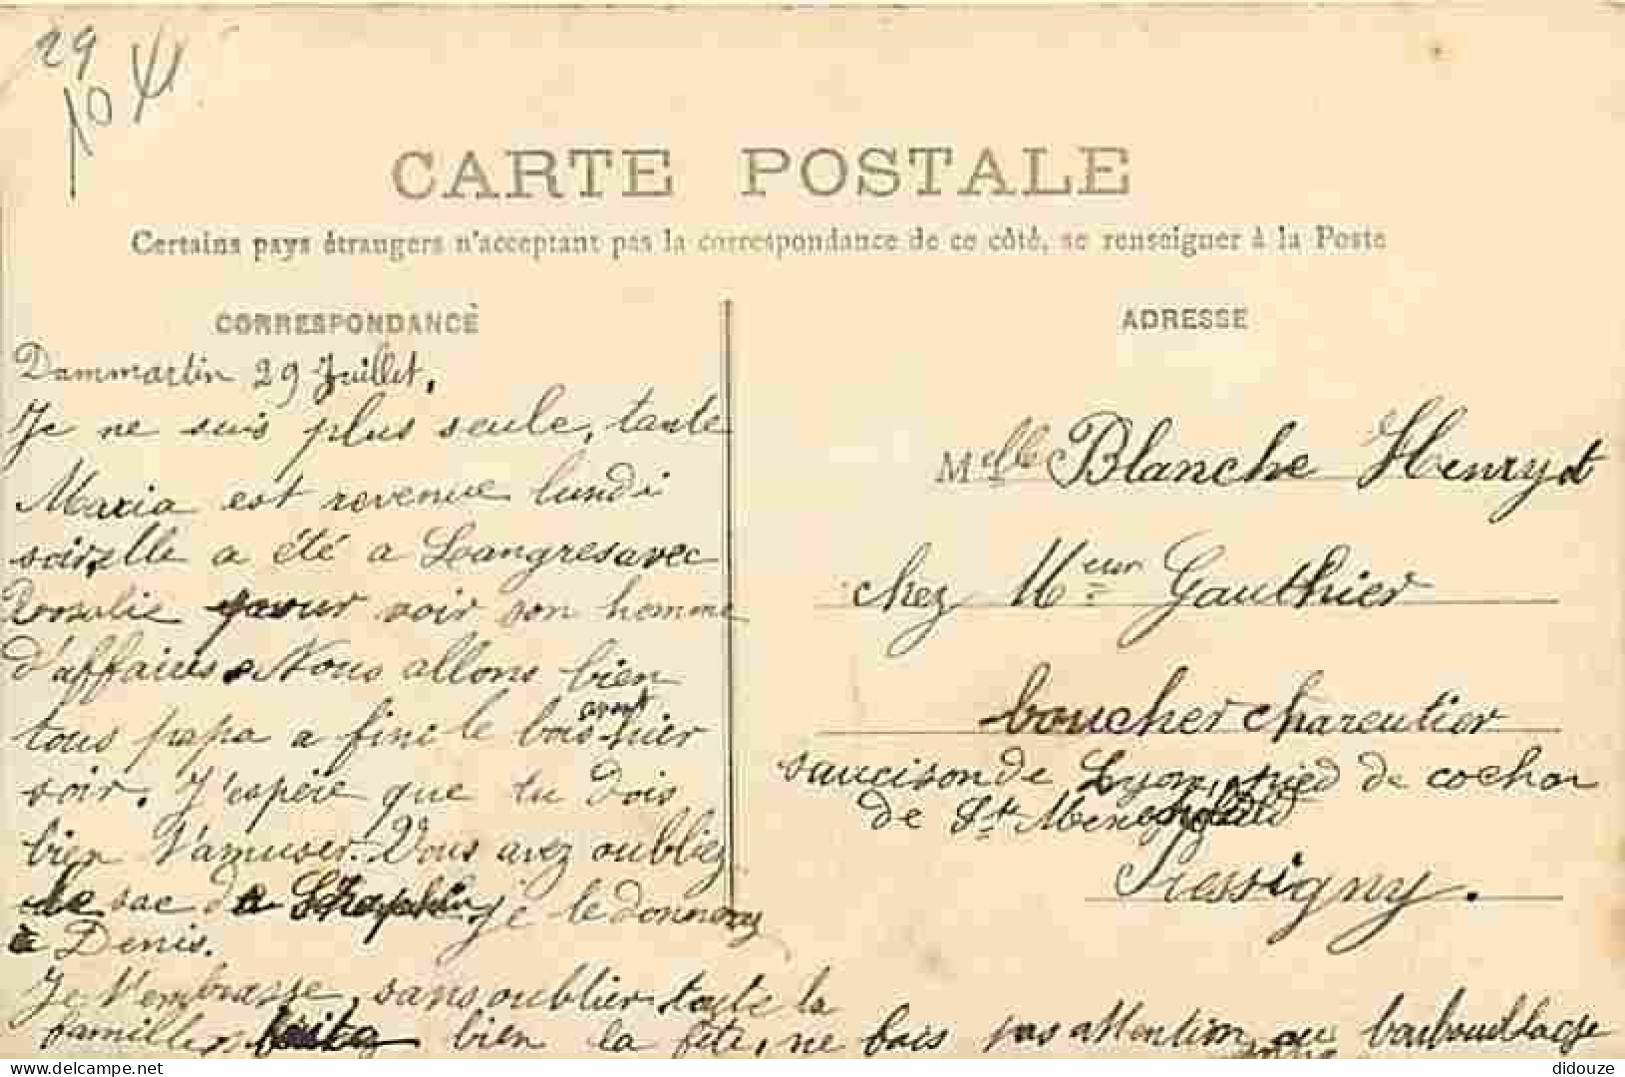 29
10
CARTE POSTALE
Certains pays étrangers n'acceptant pas la correspondance de ce côté, se renseigner à la Poste
CORRESPONDANCE
Dammartin 29 Juillet.
Je ne suis plus seule, tante
Maria est revenue lundi
soir, elle a été a Langres avec
Rosalie pour voir son homme
d'affaires. Nous allons bien
tous papa a fini le bois avant hier
soir. J'espère que tu dois
bien t'amuser. Vous avez oubliez
le sac je le donnerez
à Denis.
Je t'embrasse, sans oublier toute la
famille, faites bien la fête, ne fais pas attention au
ADRESSE
Melle Blanche Henryot
chez Meur Gauthier
boucher charcutier
saucison de Lyon, pied de cochon
de St Menehould
Pressigny.
didouze